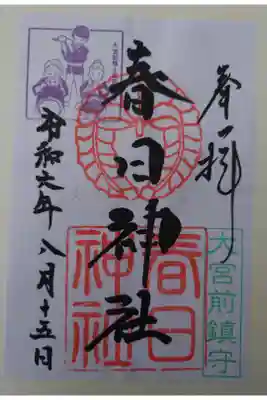 奉拝
春日神社
春日
神社
大宮前鎮守
令和六年八月十五日